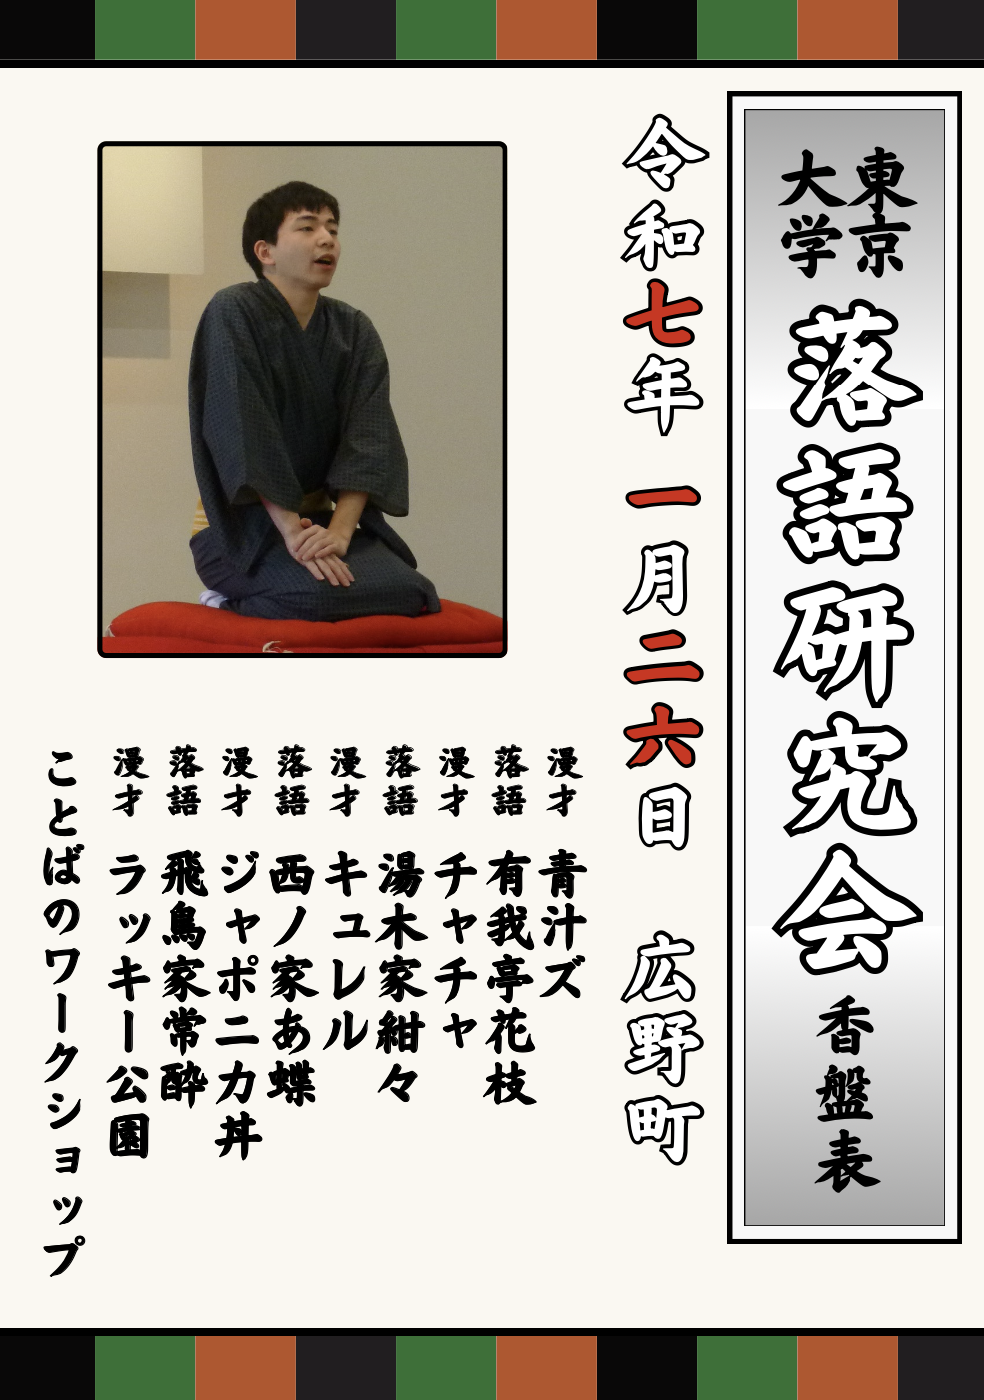 東京
大学
落語研究会
香盤表
令和七年 一月二六日 広野町
漫才 青汁ズ
落語 有我亭花枝
漫才 チャチャ
落語 湯木家紺々
漫才 キュレル
落語 西ノ家あ蝶
漫才 ジャポニカ丼
落語 飛鳥家常酔
漫才 ラッキー公園
ことばのワークショップ